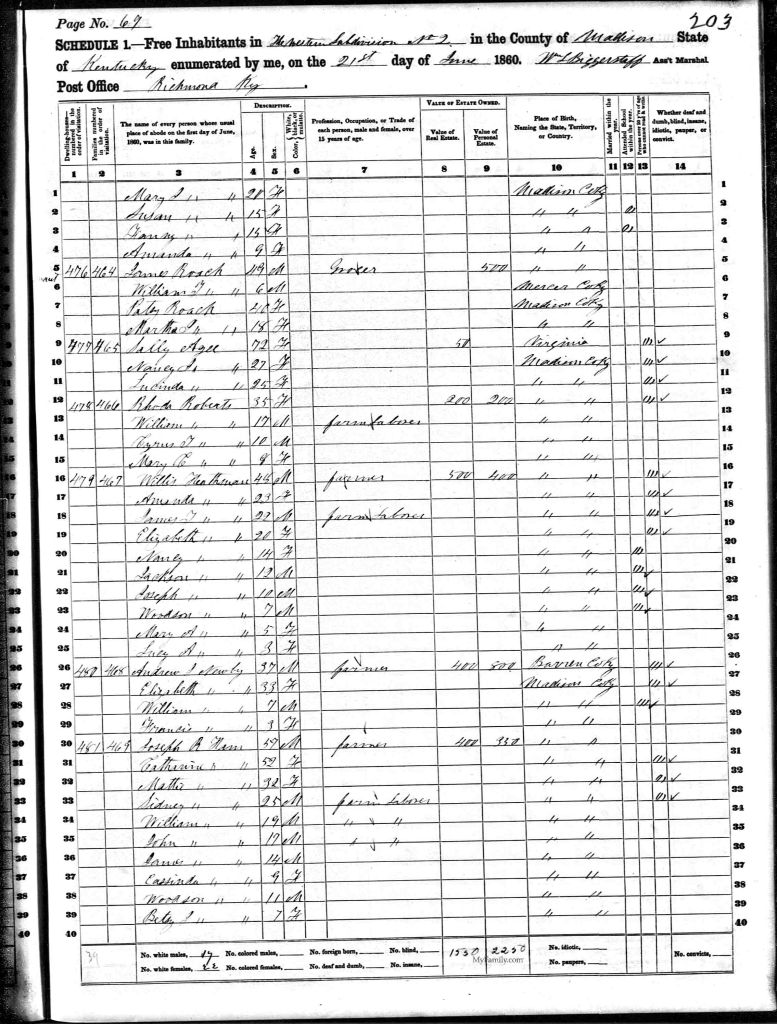 Page No. 69
203
SCHEDULE 1.—Free Inhabitants in The western Subdivision No 2 in the County of Madison State
of Kentucky enumerated by me, on the 21st day of June 1860. Wm L Biggerstaff Ass't Marshal
Post Office Richmond Ky.
Dwelling-houses—numbered in the order of visitation.
Families numbered in the order of visitation.
The name of every person whose usual place of abode on the first day of June, 1860, was in this family.
DESCRIPTION.
Age.
Sex.
Color, White, black, or mulatto.
Profession, Occupation, or Trade of each person, male and female, over 15 years of age.
VALUE OF ESTATE OWNED.
Value of Real Estate.
Value of Personal Estate.
Place of Birth, Naming the State, Territory, or Country.
Married within the year.
Attended School within the year.
Whether deaf and dumb, blind, insane, idiotic, pauper, or convict.
1 2 3 4 5 6 7 8 9 10 11 12 13 14
1 Mary J " " 20 F Madison Co Ky 1
2 Susan " " 15 F " " 2
3 Fanny " " 13 F " " 3
4 Amanda " " 9 F " " 4
5 476 464 James Roach 49 M Grocer 500 " " 5
6 William T " " 6 M Mercer Co Ky 6
7 Patsy Roach 40 F Madison Co Ky 7
8 Martha J " " 18 F " " 8
9 477 465 Sally Agee 72 F 50 Virginia 9
10 Nancy " " 27 F Madison Co Ky 10
11 Lucinda " " 25 F " " 11
12 478 466 Rhoda Roberts 35 F 200 200 " " 12
13 William " " 17 M farm Laborer " " 13
14 Cyrus T " " 10 M " " 14
15 Mary E " " 8 F " " 15
16 479 467 Willis Heathman 46 M farmer 500 400 " " 16
17 Amanda " " 23 F " " 17
18 James T " " 22 M farm Laborer " " 18
19 Elizabeth " " 20 F " " 19
20 Nancy " " 14 F " " 20
21 Jackson " " 12 M " " 21
22 Joseph " " 10 M " " 22
23 Woodson " " 7 M " " 23
24 Mary A " " 5 F " " 24
25 Lucy A " " 3 F " " 25
26 480 468 Andrew J Newby 37 M farmer 400 800 Barren Co Ky 26
27 Elizabeth " " 33 F Madison Co Ky 27
28 William " " 7 M " " 28
29 Francis " " 3 F " " 29
30 481 469 Joseph R Ham 57 M farmer 400 350 " " 30
31 Catharine " " 52 F " " 31
32 " " 32 F " " 32
33 Sidney " " 25 M farm Laborer " " 33
34 William " " 19 M " " " " 34
35 John " " 17 M " " " " 35
36 James " " 14 M " " 36
37 Cassinda " " 9 F " " 37
38 Woodson " " 11 M " " 38
39 Betsy J " " 7 F " " 39
40 40
39
No. white males, 17 No. colored males, No. foreign born, No. blind, 1550 2250 No. idiotic, No. convicts,
No. white females, 22 No. colored females, No. deaf and dumb, No. insane, No. paupers,
MyFamily.com